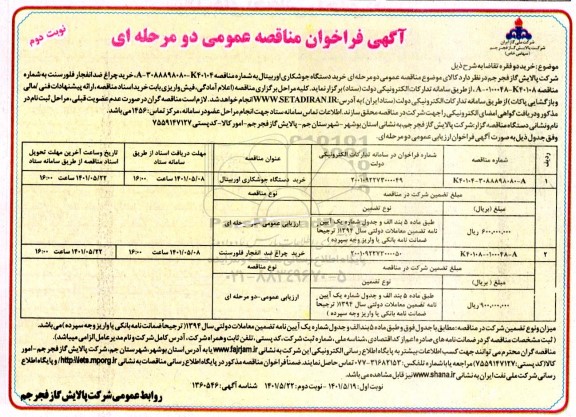 شرکت ملی گاز ایران
شرکت پالایش گاز فجر جم
(سهامی خاص)
آگهی فراخوان مناقصه عمومی دو مرحله ای
نوبت دوم
موضوع: خرید دو فقره تقاضا به شرح ذیل
شرکت پالایش گاز فجر جم در نظر دارد کالای موضوع مناقصه عمومی دو مرحله ای خرید دستگاه جوشکاری اوربیتال به شماره مناقصه K۴۰۱۰۲-۳۰۸۸۸۹۸۰۸۰-A، خرید چراغ ضد انفجار فلورسنت به شماره
مناقصه K۴۰۱۰۸-۰۱۰۰۴۸-A، را از طریق سامانه تدارکات الکترونیکی دولت (ستاد) برگزار نماید. کلیه مراحل برگزاری مناقصه (اعلام آمادگی، فیش واریزی بابت خرید اسناد مناقصه، ارائه پیشنهادات فنی/مالی
و بازگشایی پاکات) از طریق سامانه تدارکات الکترونیکی دولت (ستاد ایران) به آدرس: WWW.SETADIRAN.IR انجام خواهد شد. لازم است مناقصه گران در صورت عدم عضویت قبلی، مراحل ثبت نام در
مذکور و دریافت گواهی امضای الکترونیکی را جهت شرکت در مناقصه محقق سازند. اطلاعات تماس سامانه ستاد جهت انجام مراحل عضو در سامانه، مرکز تماس: ۱۴۵۶ می باشد.
نام و نشانی دستگاه مناقصه گزار: شرکت پالایش گاز فجر جم، به نشانی استان بوشهر - شهرستان جم - پالایش گاز فجر جم - امور کالا - کد پستی ۷۵۵۹۱۴۷۱۳۷
وفق جدول ذیل به صورت آگهی فراخوان ارزیابی عمومی دو مرحله ای.
ردیف | شماره مناقصه | شماره فراخوان در سامانه تدارکات الکترونیکی دولت | عنوان مناقصه | مهلت دریافت اسناد از طریق سامانه ستاد | تاریخ و ساعت آخرین مهلت تحویل اسناد مناقصه از طریق سامانه ستاد
۱ | K۴۰۱۰۲-۳۰۸۸۸۹۸۰۸۰-A | ۲۰۰۱۰۹۲۲۷۳۰۰۰۰۴۹ | خرید دستگاه جوشکاری اوربیتال | ۱۴۰۱/۰۵/۰۸ ساعت ۱۶:۰۰ | ۱۴۰۱/۰۵/۲۲ ساعت ۱۶:۰۰
مبلغ تضمین شرکت در مناقصه | نوع مناقصه
مبلغ (ریال) | نوع تضمین | ارزیابی عمومی - دو مرحله ای
۶۰۰,۰۰۰,۰۰۰ ریال | طبق ماده ۵ بند الف و جدول شماره یک آیین نامه تضمین معاملات دولتی سال ۱۳۹۴ (ترجیحا ضمانت نامه بانکی یا واریز وجه سپرده)
۲ | K۴۰۱۰۸-۰۱۰۰۴۸-A | ۲۰۰۱۰۹۲۲۷۳۰۰۰۰۵۰ | خرید چراغ ضد انفجار فلورسنت | ۱۴۰۱/۰۵/۰۸ ساعت ۱۶:۰۰ | ۱۴۰۱/۰۵/۲۲ ساعت ۱۶:۰۰
مبلغ تضمین شرکت در مناقصه | نوع مناقصه
مبلغ (ریال) | نوع تضمین | ارزیابی عمومی - دو مرحله ای
۹۰۰,۰۰۰,۰۰۰ ریال | طبق ماده ۵ بند الف و جدول شماره یک آیین نامه تضمین معاملات دولتی سال ۱۳۹۴ (ترجیحا ضمانت نامه بانکی یا واریز وجه سپرده)
میزان و نوع تضمین شرکت در مناقصه: مطابق با جدول فوق و طبق ماده ۵ بند الف و جدول شماره یک آیین نامه تضمین معاملات دولتی سال ۱۳۹۴ (ترجیحا ضمانت نامه بانکی یا واریز وجه سپرده) می باشد.
(ثبت مشخصات مناقصه گر در ضمانت نامه های صادره اعم از کد اقتصادی، شناسه ملی، شماره ثبت شرکت، کد پستی، تلفن ثابت و همراه شرکت، آدرس کامل شرکت و نام مدیر عامل الزامی میباشد).
مناقصه گران محترم می توانند جهت کسب اطلاعات بیشتر به پایگاه اطلاع رسانی الکترونیکی این شرکت به نشانی www.fajrjam.ir یا به آدرس استان بوشهر، شهرستان جم، شرکت پالایش گاز فجر جم - امور
کالا (کد پستی: ۷۵۵۹۱۴۷۱۳۷) مراجعه یا با شماره تلفنکس: ۳۱۶۸۲۱۵۳-۰۷۷ تماس حاصل نمایند. ضمناً فراخوان مناقصه مذکور در پایگاه اطلاع رسانی مناقصات به نشانی http://iets.mporg.ir و پایگاه اطلاع
رسانی شرکت ملی نفت ایران به نشانی www.shana.ir نیز قابل مشاهده می باشد.
نوبت اول: ۱۴۰۱/۰۵/۱۹ - نوبت دوم: ۱۴۰۱/۵/۲۲ شناسه آگهی: ۱۳۶۰۵۴۶
روابط عمومی شرکت پالایش گاز فجر جم
۰۲۱-۸۸۳۴۹۶۷۰-۵